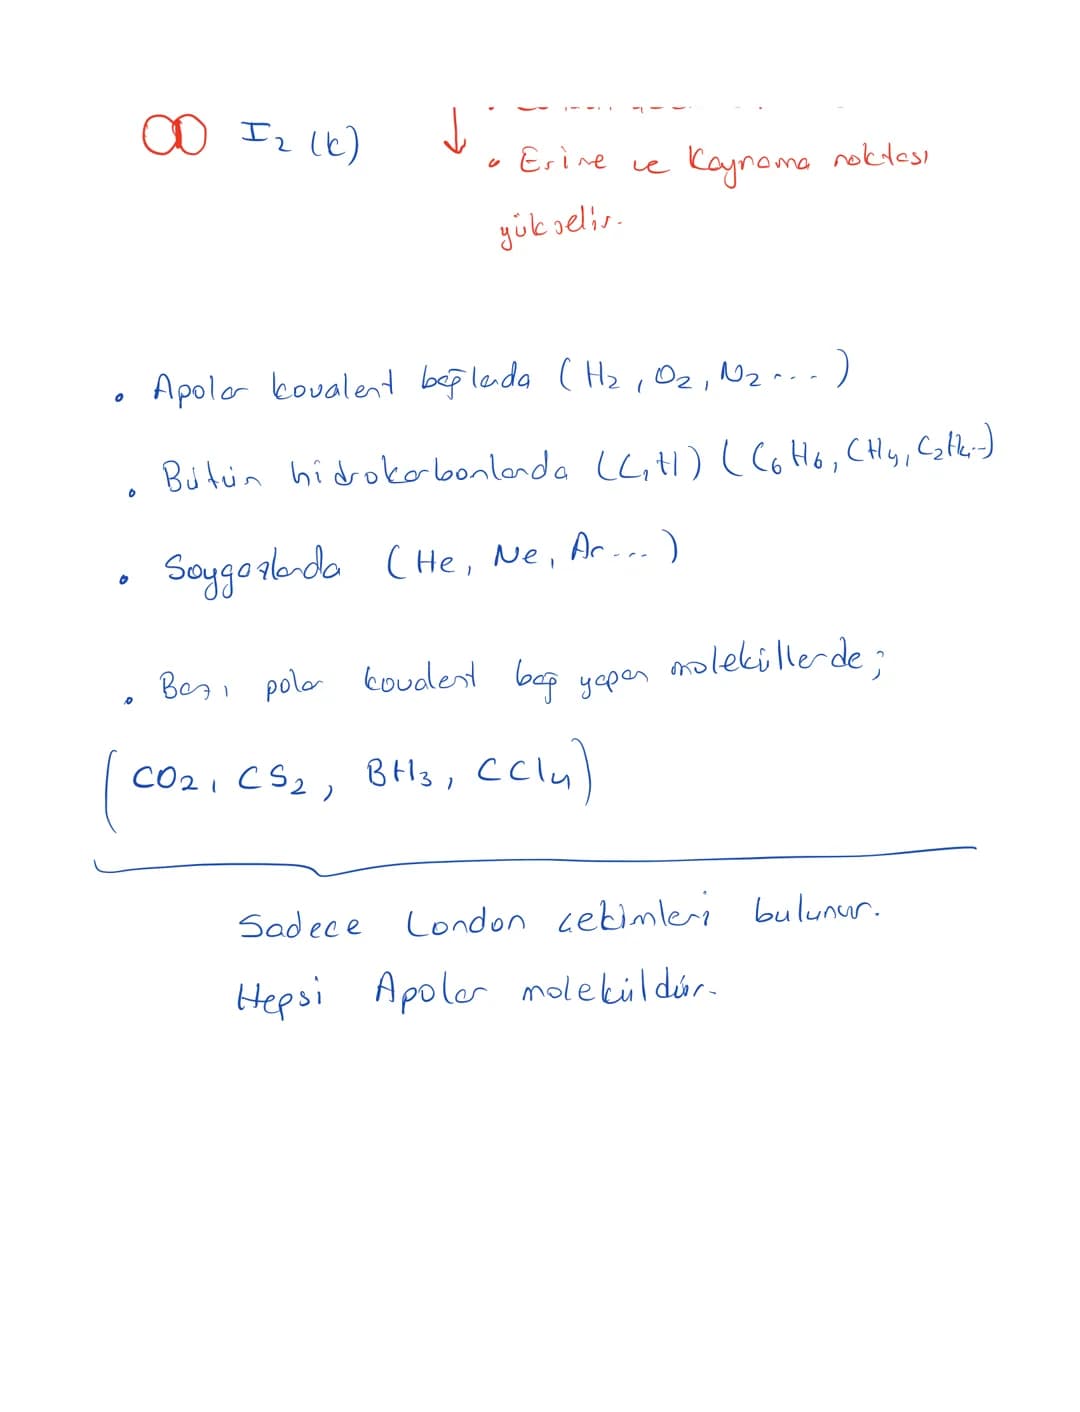 I2 (k)
• Erime ve Kaynama noktası
yükselir.
• Apolar kovalent bağlarda (H2, O2, N2...)
• Bütün hidrokarbonlarda (C,H) (C6H6, CH4, C2H4..)
• Soygazlarda (He, Ne, Ar...)
• Bazı polar kovalent bağ yapan moleküllerde;
(CO2, CS2, BH3, CCl4)
Sadece London çekimleri bulunur.
Hepsi Apolar moleküldür.